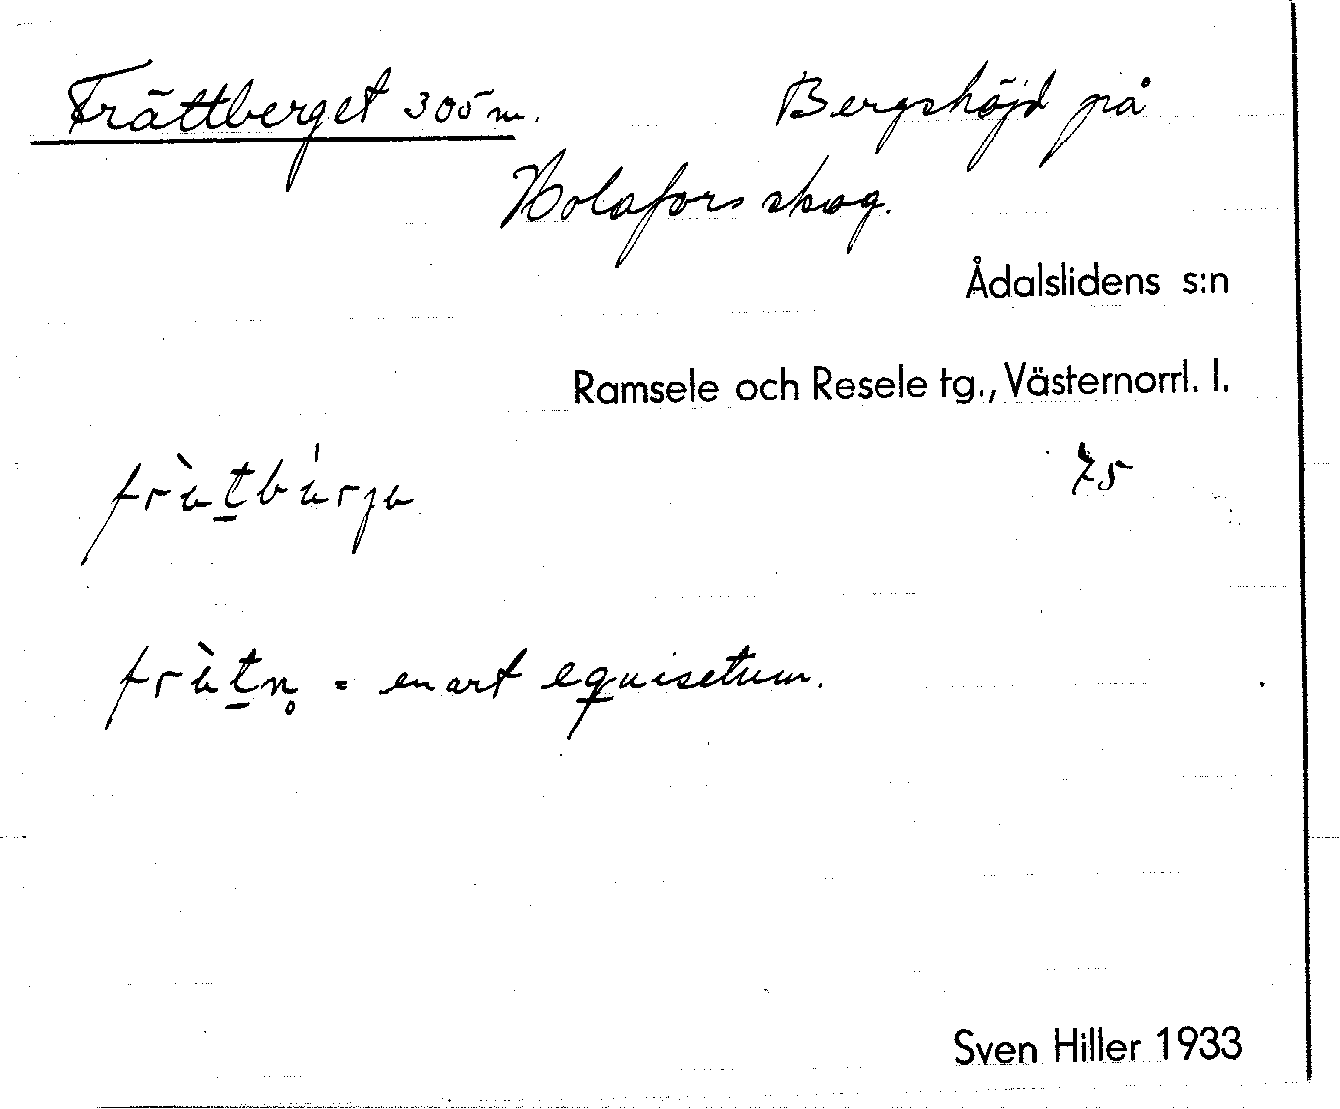 Frättberget 305 m. Bergshöjd på
Holafors skog.
Ådalslidens s:n
Ramsele och Resele tg., Västernorrl. l.
75
= en art equisetum.
Sven Hiller 1933